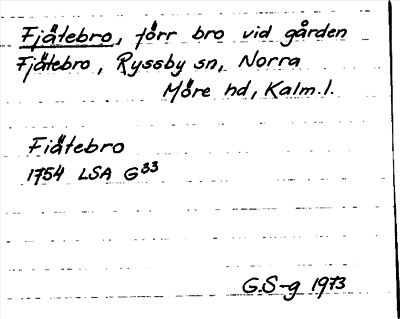 Fjätebro, förr bro vid gården
Fjätebro, Ryssby sn, Norra
Möre hd, Kalm. l.
Fiätebro
1754 LSA G33
G.S-g 1973